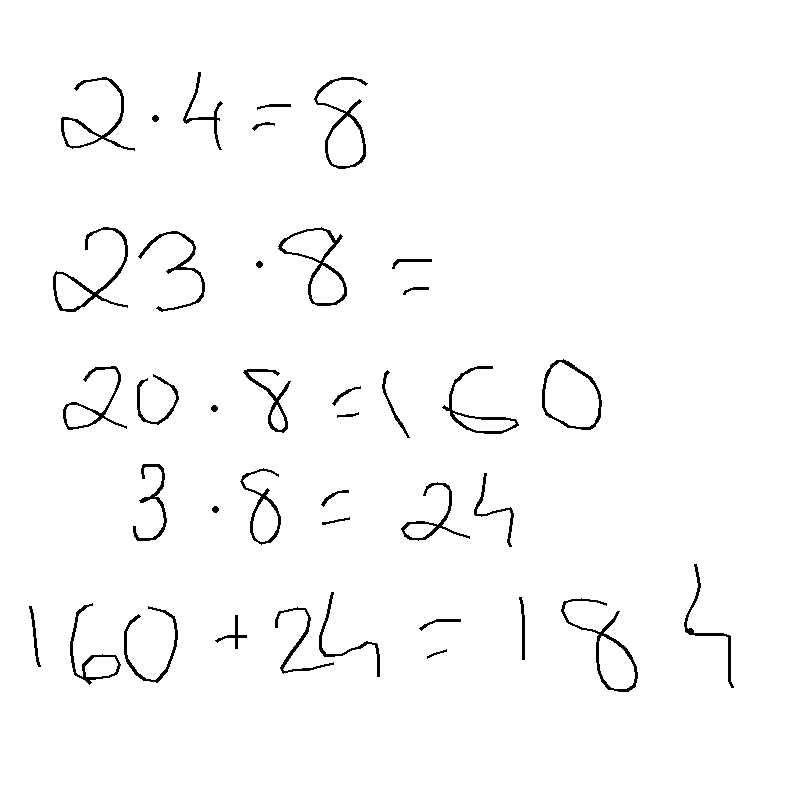 2 · 4 = 8
23 · 8 =
20 · 8 = 160
3 · 8 = 24
160 + 24 = 184